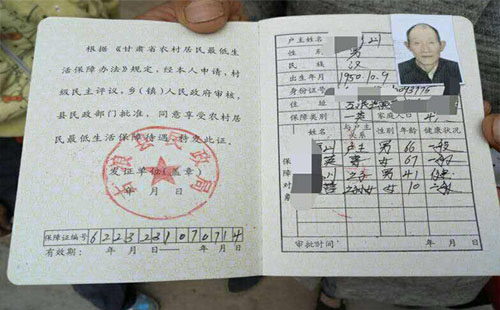 根据《甘肃省农村居民最低生
活保障办法》规定，经本人申请，村
级民主评议，乡（镇）人民政府审核，
县民政部门批准，同意享受农村居
民最低生活保障待遇，特发此证。
县民政局
发证单位（盖章）
年 月 日
保障证编号 6223231070714
有效期： 年 月 日— 年 月 日
户主姓名
性 别 男
民 族 汉
出生年月 1950.10.9
身份证号
住 址
保障类别 一类 家庭人口 4人
保障对象
姓名 与户主关系 性别 年龄 健康状况
户主 男 66 一般
妻 女 67 一般
之子 男 41
女 10
审批时间 年 月 日